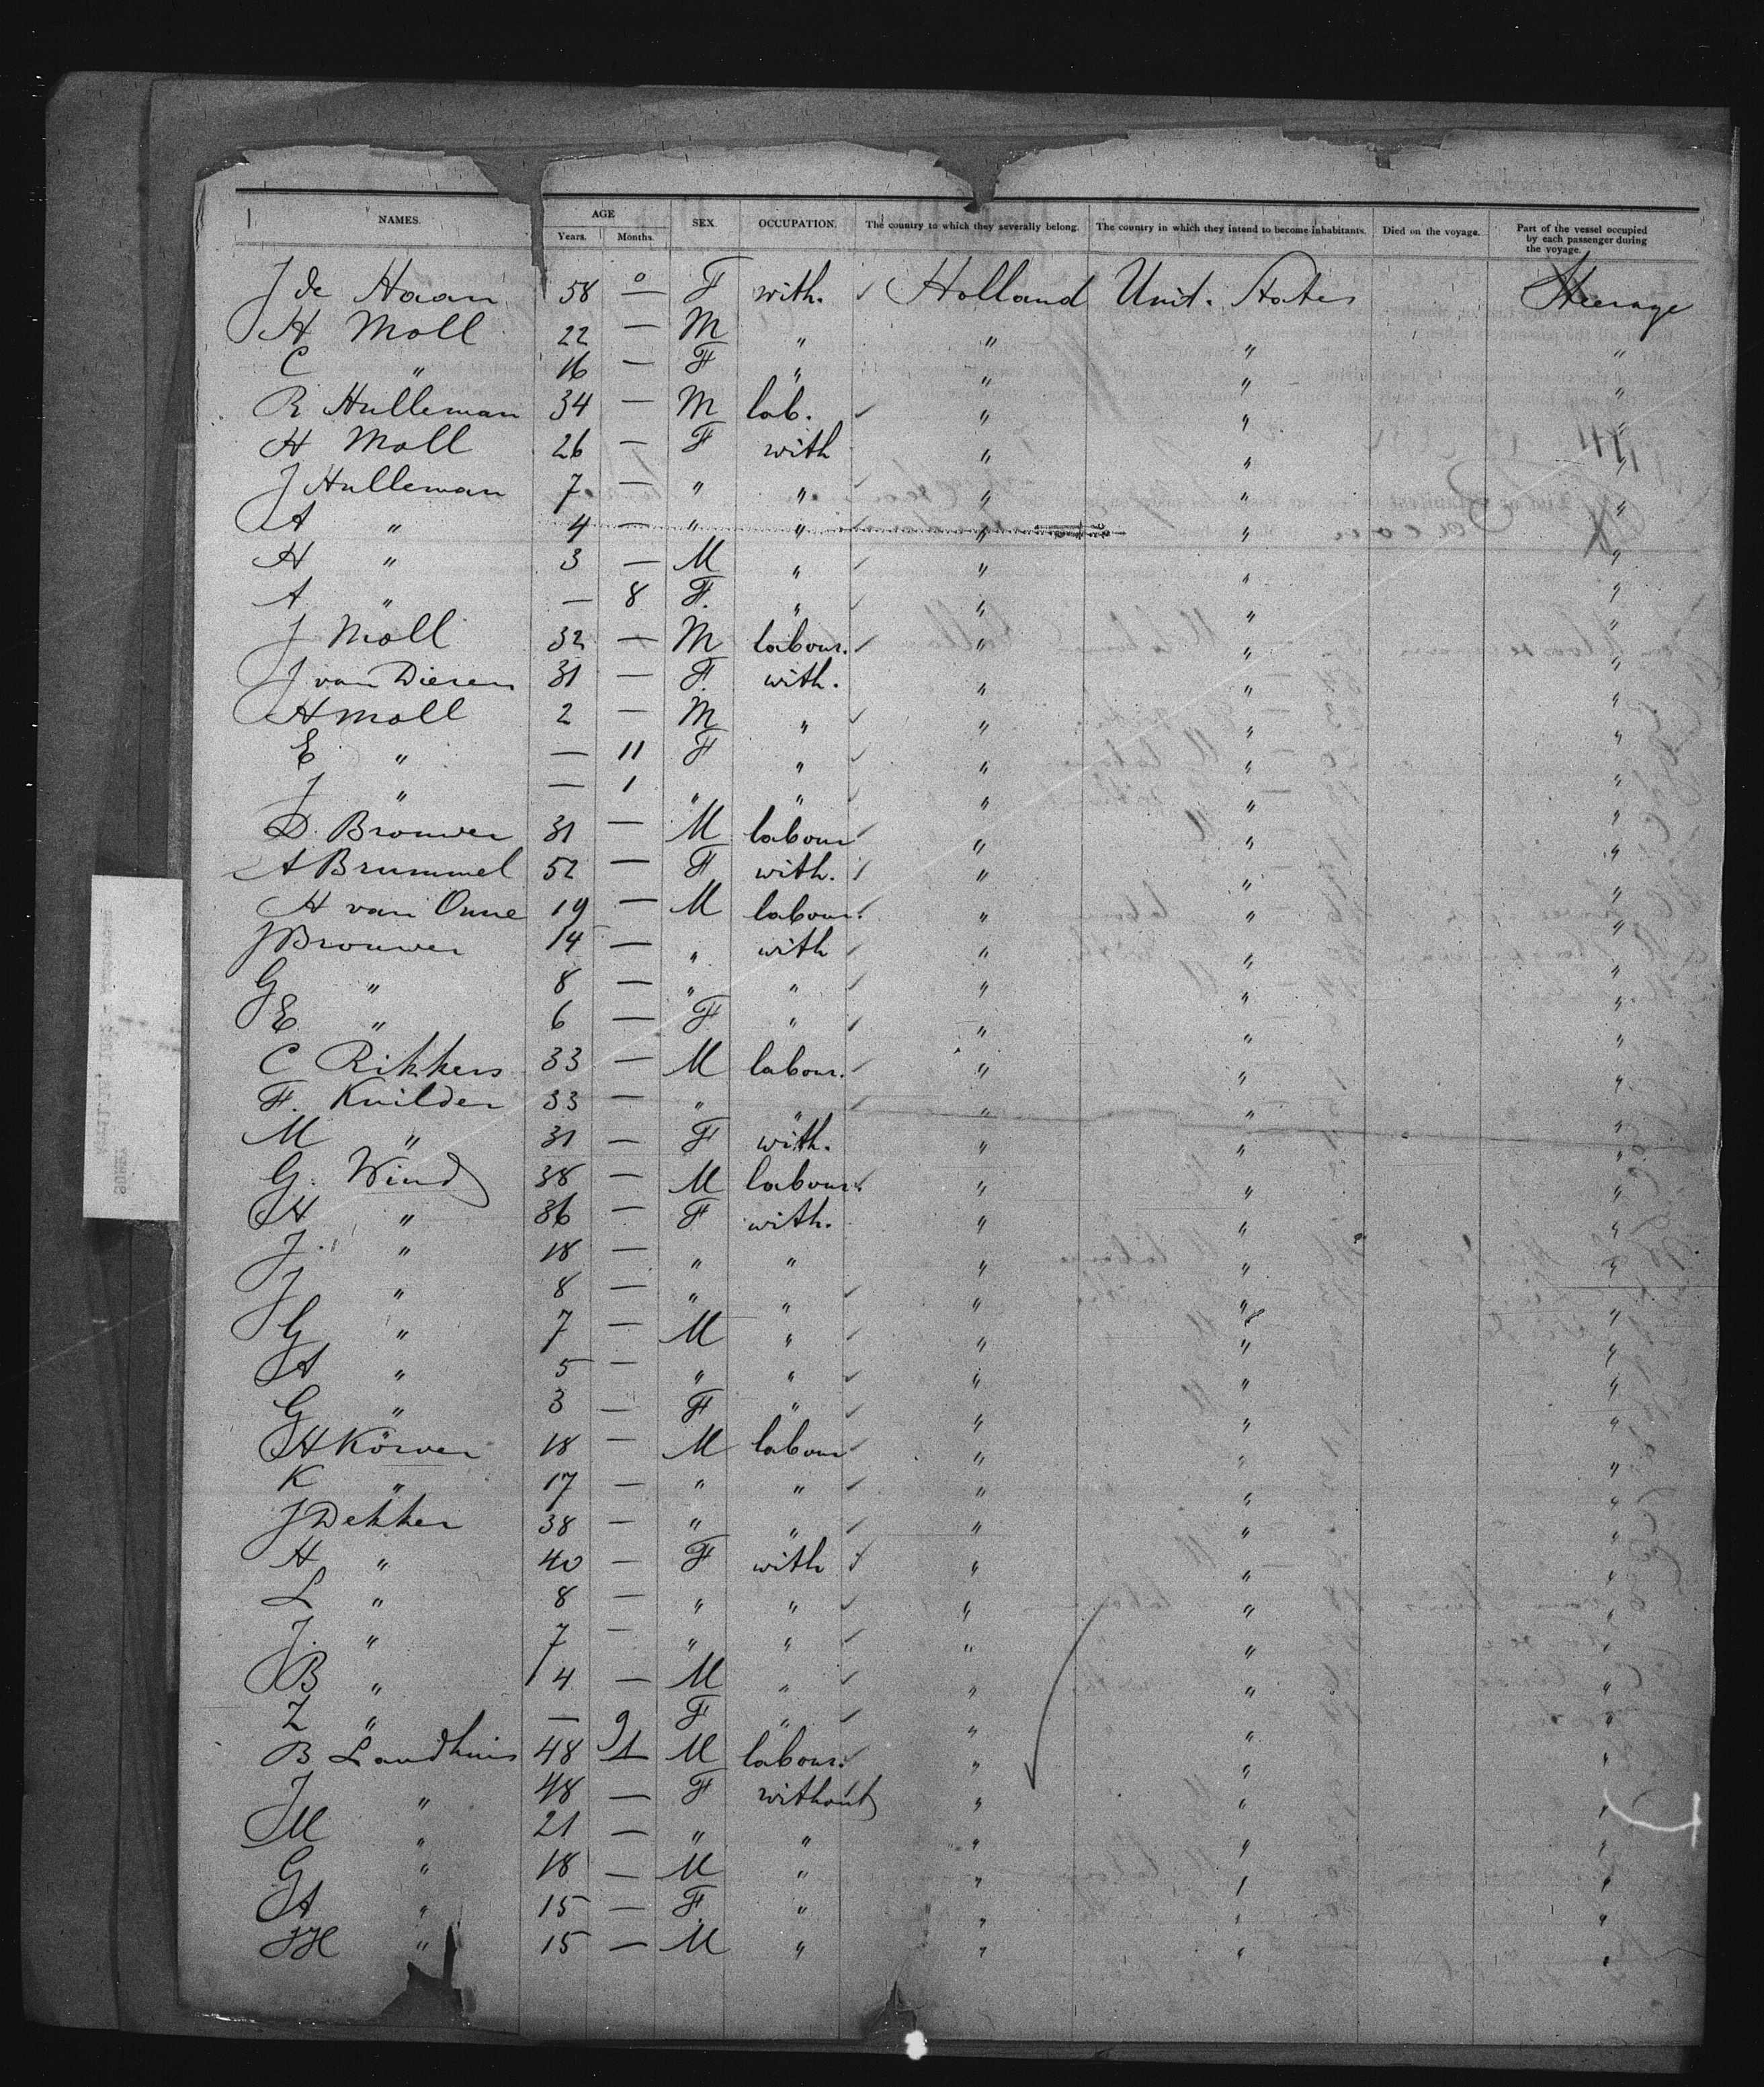 NAMES. AGE Years. Months. SEX OCCUPATION. The country to which they severally belong. The country in which they intend to become inhabitants. Died on the voyage. Part of the vessel occupied by each passenger during the voyage.
J de Haan 58 — F with. Holland Unit. States Steerage
H Moll 22 — M " " " "
C " 16 — F " " " "
R Hulleman 34 — M lab. " " "
H Moll 26 — F with " " "
J Hulleman 7 — " " " " "
A " 4 — " " " " "
H " 3 — M " " " "
A " — 8 F. " " " "
J Moll 32 — M labour. " " "
J van Dieren 31 — F. with. " " "
H Moll 2 — M " " " "
E " — 11 F " " " "
J " — 1 " " " " "
D. Brouwer 31 — M labour " " "
A Brummel 52 — F with. " " "
H van Onne 19 — M labour. " " "
J Brouwer 14 — " with " " "
G " 8 — " " " " "
E " 6 — F " " " "
C Rikkers 33 — M labour. " " "
F. Kuilder 33 — " " " " "
M " 31 — F with. " " "
G. Wind 38 — M labour. " " "
H " 36 — F with. " " "
J. " 18 — " " " " "
J " 8 — " " " " "
G " 7 — M " " " "
A " 5 — " " " " "
G " 3 — F " " " "
H Körver 18 — M labour " " "
K " 17 — " " " " "
J Dekker 38 — " " " " "
H " 40 — F with " " "
L " 8 — " " " " "
J. " 7 — " " " " "
B " 4 — M " " " "
Z " — 9 F " " " "
B Landhuis 48 1 M labour. " " "
J " 48 — F without " " "
M " 21 — " " " " "
G " 18 — M " " " "
A " 15 — F. " " " "
H " 15 — M " " " "